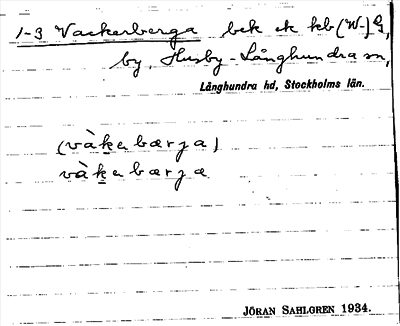 1-3 Vackerberga bek ek kb (W-) G,
by, Husby-Långhundra sn,
Långhundra hd, Stockholms län.
(vàkabærja)
vàkabærjæ
JÖRAN SAHLGREN 1934.